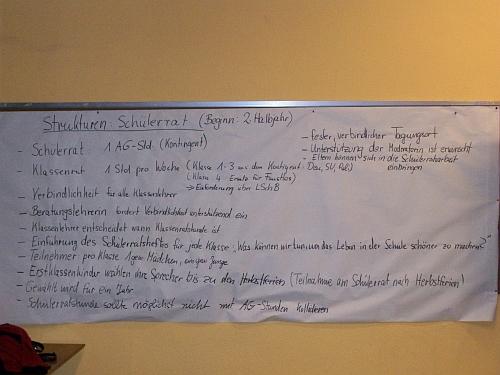 Strukturen: Schülerrat (Beginn: 2. Halbjahr)
- Schülerrat 1 AG-Std (Kontingent)
- Klassenrat 1 Std pro Woche (Klasse 1-3 aus dem Kontingent: Deu, SU,
(Klasse 4 Ersatz für
→ Einforderung über LSchB
- Verbindlichkeit für alle Klassenlehrer
- Beratungslehrerin fordert Verbindlichkeit unterstützend ein
- Klassenlehrer entscheidet wann Klassenratsstunde ist
- Einführung des Schülerratshefts für jede Klasse: „Was können wir tun, um das Leben in der Schule schöner zu machen?"
- Teilnehmer pro Klasse 1 Mädchen, Junge
- Erstklassenkinder wählen ihre Sprecher bis zu den Herbstferien (Teilnahme am Schülerrat nach Herbstferien)
- Gewählt wird für ein Jahr
- Schülerratsstunde sollte möglichst nicht mit AG-Stunden kollidieren
- fester, verbindlicher Tagungsort
- Unterstützung der Moderatorin ist erwünscht
- Eltern können sich in die Schülerratsarbeit
einbringen